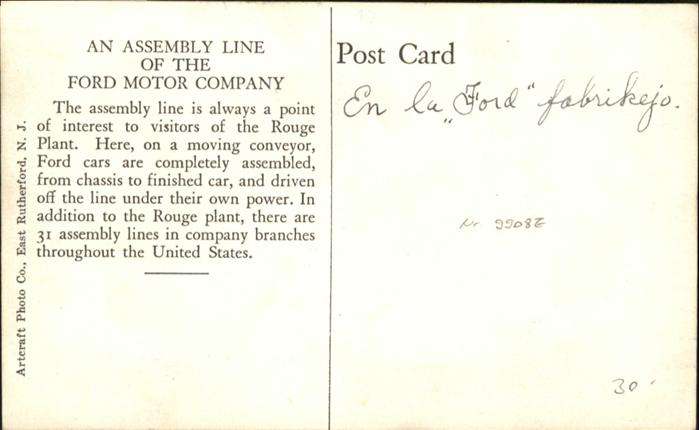 AN ASSEMBLY LINE
OF THE
FORD MOTOR COMPANY
The assembly line is always a point
of interest to visitors of the Rouge
Plant. Here, on a moving conveyor,
Ford cars are completely assembled,
from chassis to finished car, and driven
off the line under their own power. In
addition to the Rouge plant, there are
31 assembly lines in company branches
throughout the United States.
Artcraft Photo Co., East Rutherford, N. J.
Post Card
En la „Ford“ fabrikejo.
Nr 9908
30